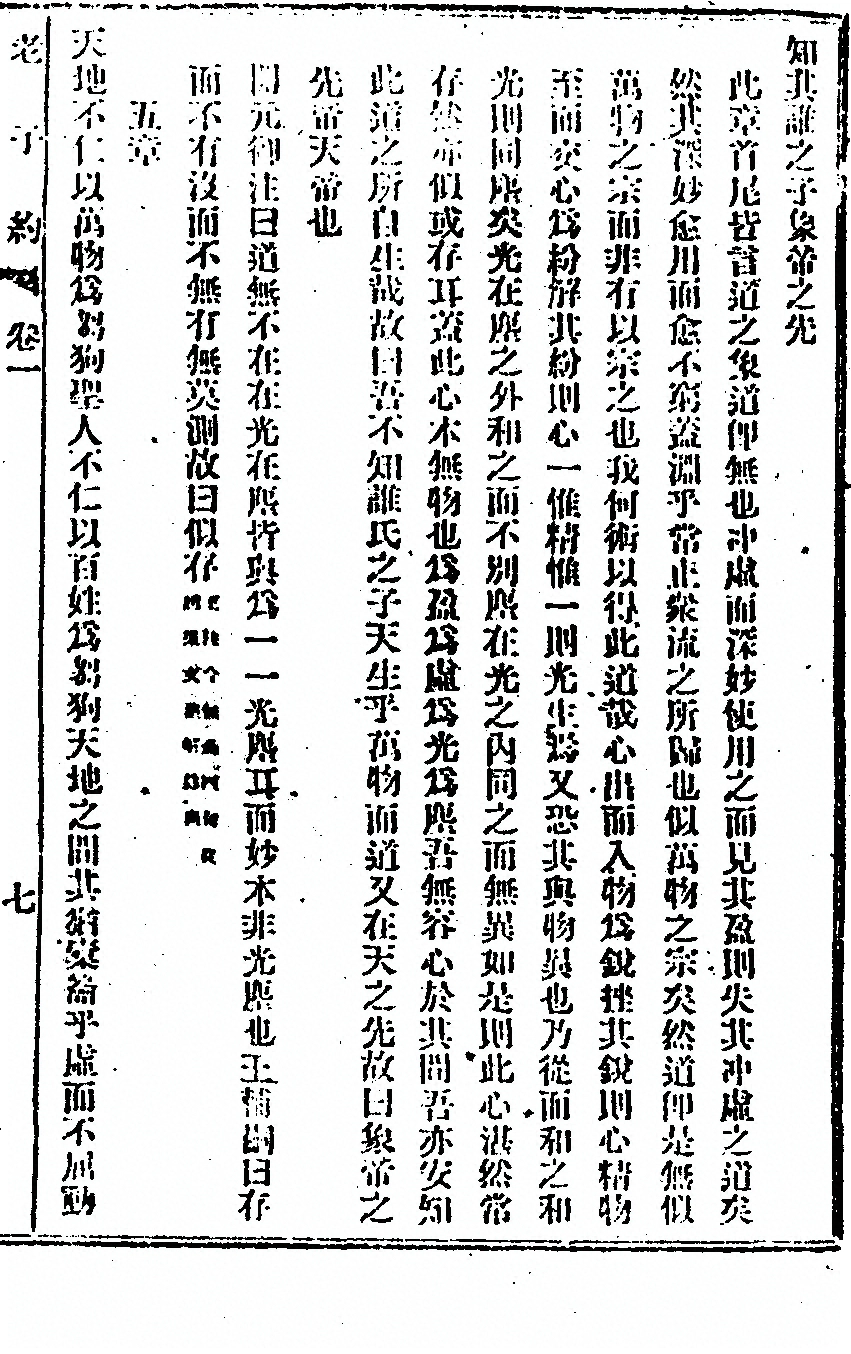 知其誰之子象帝之先
此章首尾皆言道之象道卽無也冲虛而深妙使用之而見其盈則失其冲虛之道矣
然其深妙愈用而愈不窮蓋淵乎常正衆流之所歸也似萬物之宗矣然道卽是無似
萬物之宗而非有以宗之也我何術以得此道哉心出而入物爲銳挫其銳則心精物
至而交心爲紛解其紛則心一惟精惟一則光生焉又恐其與物異也乃從而和之和
光則同塵矣光在塵之外和之而不別塵在光之內同之而無異如是則此心湛然常
存然亦似或存耳蓋此心本無物也爲盈爲虛爲光爲塵吾無容心於其間吾亦安知
此道之所自生哉故曰吾不知誰氏之子天生乎萬物而道又在天之先故曰象帝之
先帝天帝也
開元御注曰道無不在在光在塵皆與爲一一光塵耳而妙本非光塵也王輔嗣曰存
而不有沒而不無有無莫測故曰似存
五章
天地不仁以萬物爲芻狗聖人不仁以百姓爲芻狗天地之間其猶橐籥乎虛而不屈動
老子約 卷一
七